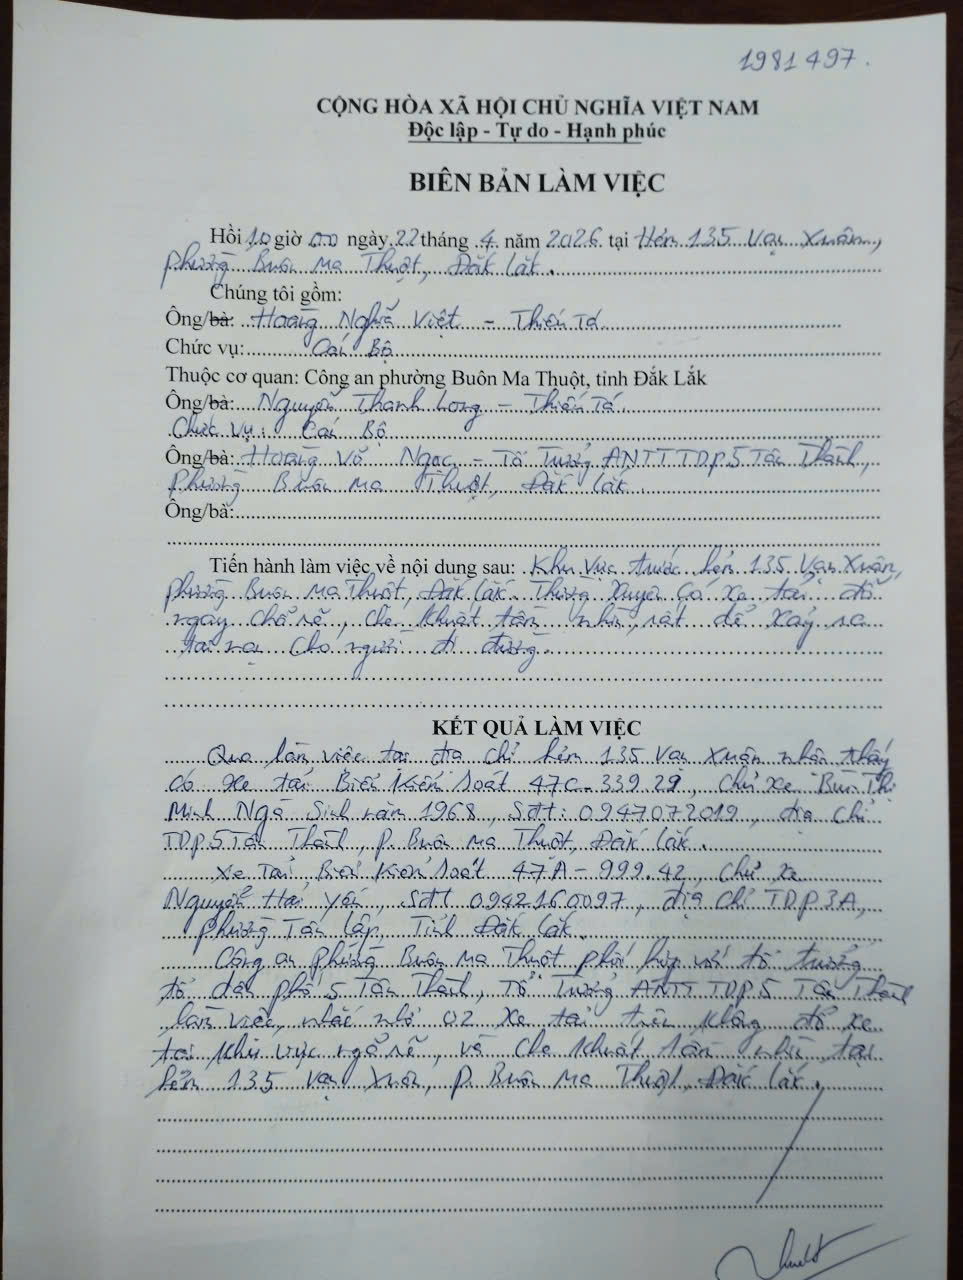 1981497.
CỘNG HÒA XÃ HỘI CHỦ NGHĨA VIỆT NAM
Độc lập - Tự do - Hạnh phúc
BIÊN BẢN LÀM VIỆC
Hồi 10 giờ 00 ngày 22 tháng 4 năm 2026 tại Hẻm 135 Vạn Xuân,
phường Buôn Ma Thuột, Đắk Lắk.
Chúng tôi gồm:
Ông/bà: Hoàng Nghĩa Việt - Thiếu Tá
Chức vụ: Cán Bộ
Thuộc cơ quan: Công an phường Buôn Ma Thuột, tỉnh Đắk Lắk
Ông/bà: Nguyễn Thanh Long - Thiếu Tá.
Chức vụ: Cán Bộ
Ông/bà: Hoàng Võ Ngọc - Tổ Trưởng ANTT TDP5 Tân Thành,
phường Buôn Ma Thuột, Đắk Lắk.
Ông/bà:
Tiến hành làm việc về nội dung sau: Khu vực trước hẻm 135 Vạn Xuân,
phường Buôn Ma Thuột, Đắk Lắk. Thường xuyên có xe tải đỗ
ngay chỗ rẽ, che khuất tầm nhìn, rất dễ xảy ra
tai nạn cho người đi đường.
KẾT QUẢ LÀM VIỆC
Qua làm việc tại địa chỉ hẻm 135 Vạn Xuân nhận thấy
có xe tải Biển Kiểm soát 47C-339.29, chủ xe Bùi Thị
Minh Ngà Sinh năm 1968, Sđt: 0947072019, địa chỉ
TDP5 Tân Thành, P. Buôn Ma Thuột, Đắk Lắk.
Xe Tải Biển Kiểm soát 47A-999.42, chủ xe
Nguyễn Hải Yến, Sđt 0942160097, địa chỉ TDP3A,
phường Tân Lập, Tỉnh Đắk Lắk.
Công an phường Buôn Ma Thuột phối hợp với tổ trưởng
tổ dân phố 5 Tân Thành, Tổ Trưởng ANTT TDP5 Tân Thành
làm việc, nhắc nhở 02 xe tải trên không đỗ xe
tại khu vực ngã rẽ, và che khuất tầm nhìn tại
hẻm 135 Vạn Xuân, P. Buôn Ma Thuột, Đắk Lắk.